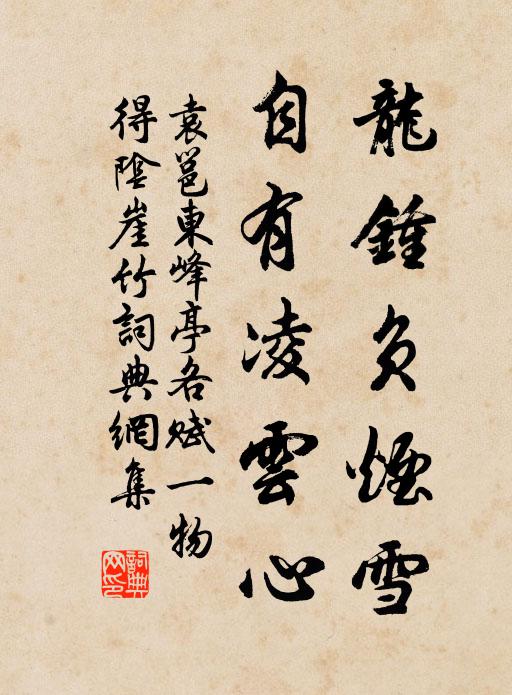 龍鍾負煙雪
自有凌雲心
袁邕東峰亭各賦一物
得陰崖竹詞典網集
詞典網印